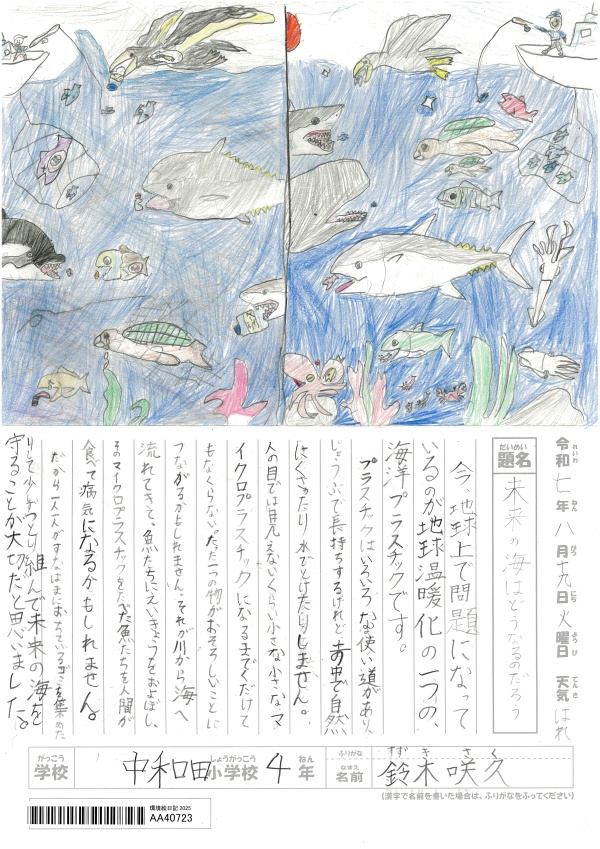 令和七年八月十九日火曜日 天気はれ
れいわ ねん がつ にち ようび てんき
だいめい
題名 未来の海はどうなるのだろう
今、地球上で問題になって
いるのが地球温暖化の一つの、
海洋プラスチックです。
プラスチックはいろいろな使い道があり
じょうぶで長持ちするけれど
自然
にくさったり水でとけたりしません。
人の目では見えないくらい小さな小さなマ
イクロプラスチックになるまでくだけて
もなくらない。たった一つの物がおそろしいことに
つながるかもしれません。それが川から海へ
流れてきて、魚たちにえいきょうをおよぼし、
そのマイクロプラスチックをたべた魚たちを人間が
食べて病気になるかもしれません。
だから一人一人がすなはまにおちているゴミを集めた
りして少しずつとり組んで未来の海を
守ることが大切だと思いました。
がっこう しょうがっこう ねん ふりがな すずき さく
学校 中和田小学校 4年 なまえ 名前 鈴木咲久
(漢字で名前を書いた場合は、ふりがなをふってください)
環境絵日記 2025
AA40723